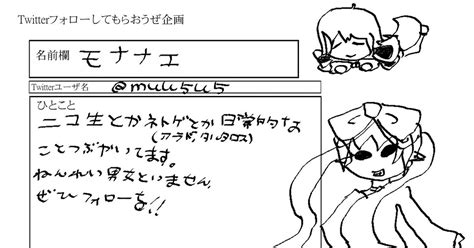 Twitterフォローしてもらおうぜ企画
名前欄 モナナエ
Twitterユーザ名 @muu5u5
ひとこと
ニコ生とかネトゲとか日常的な
(アラド,タルタロス)
ことつぶやいてます。
ねんれい男女といません。
ぜひフォローを!!